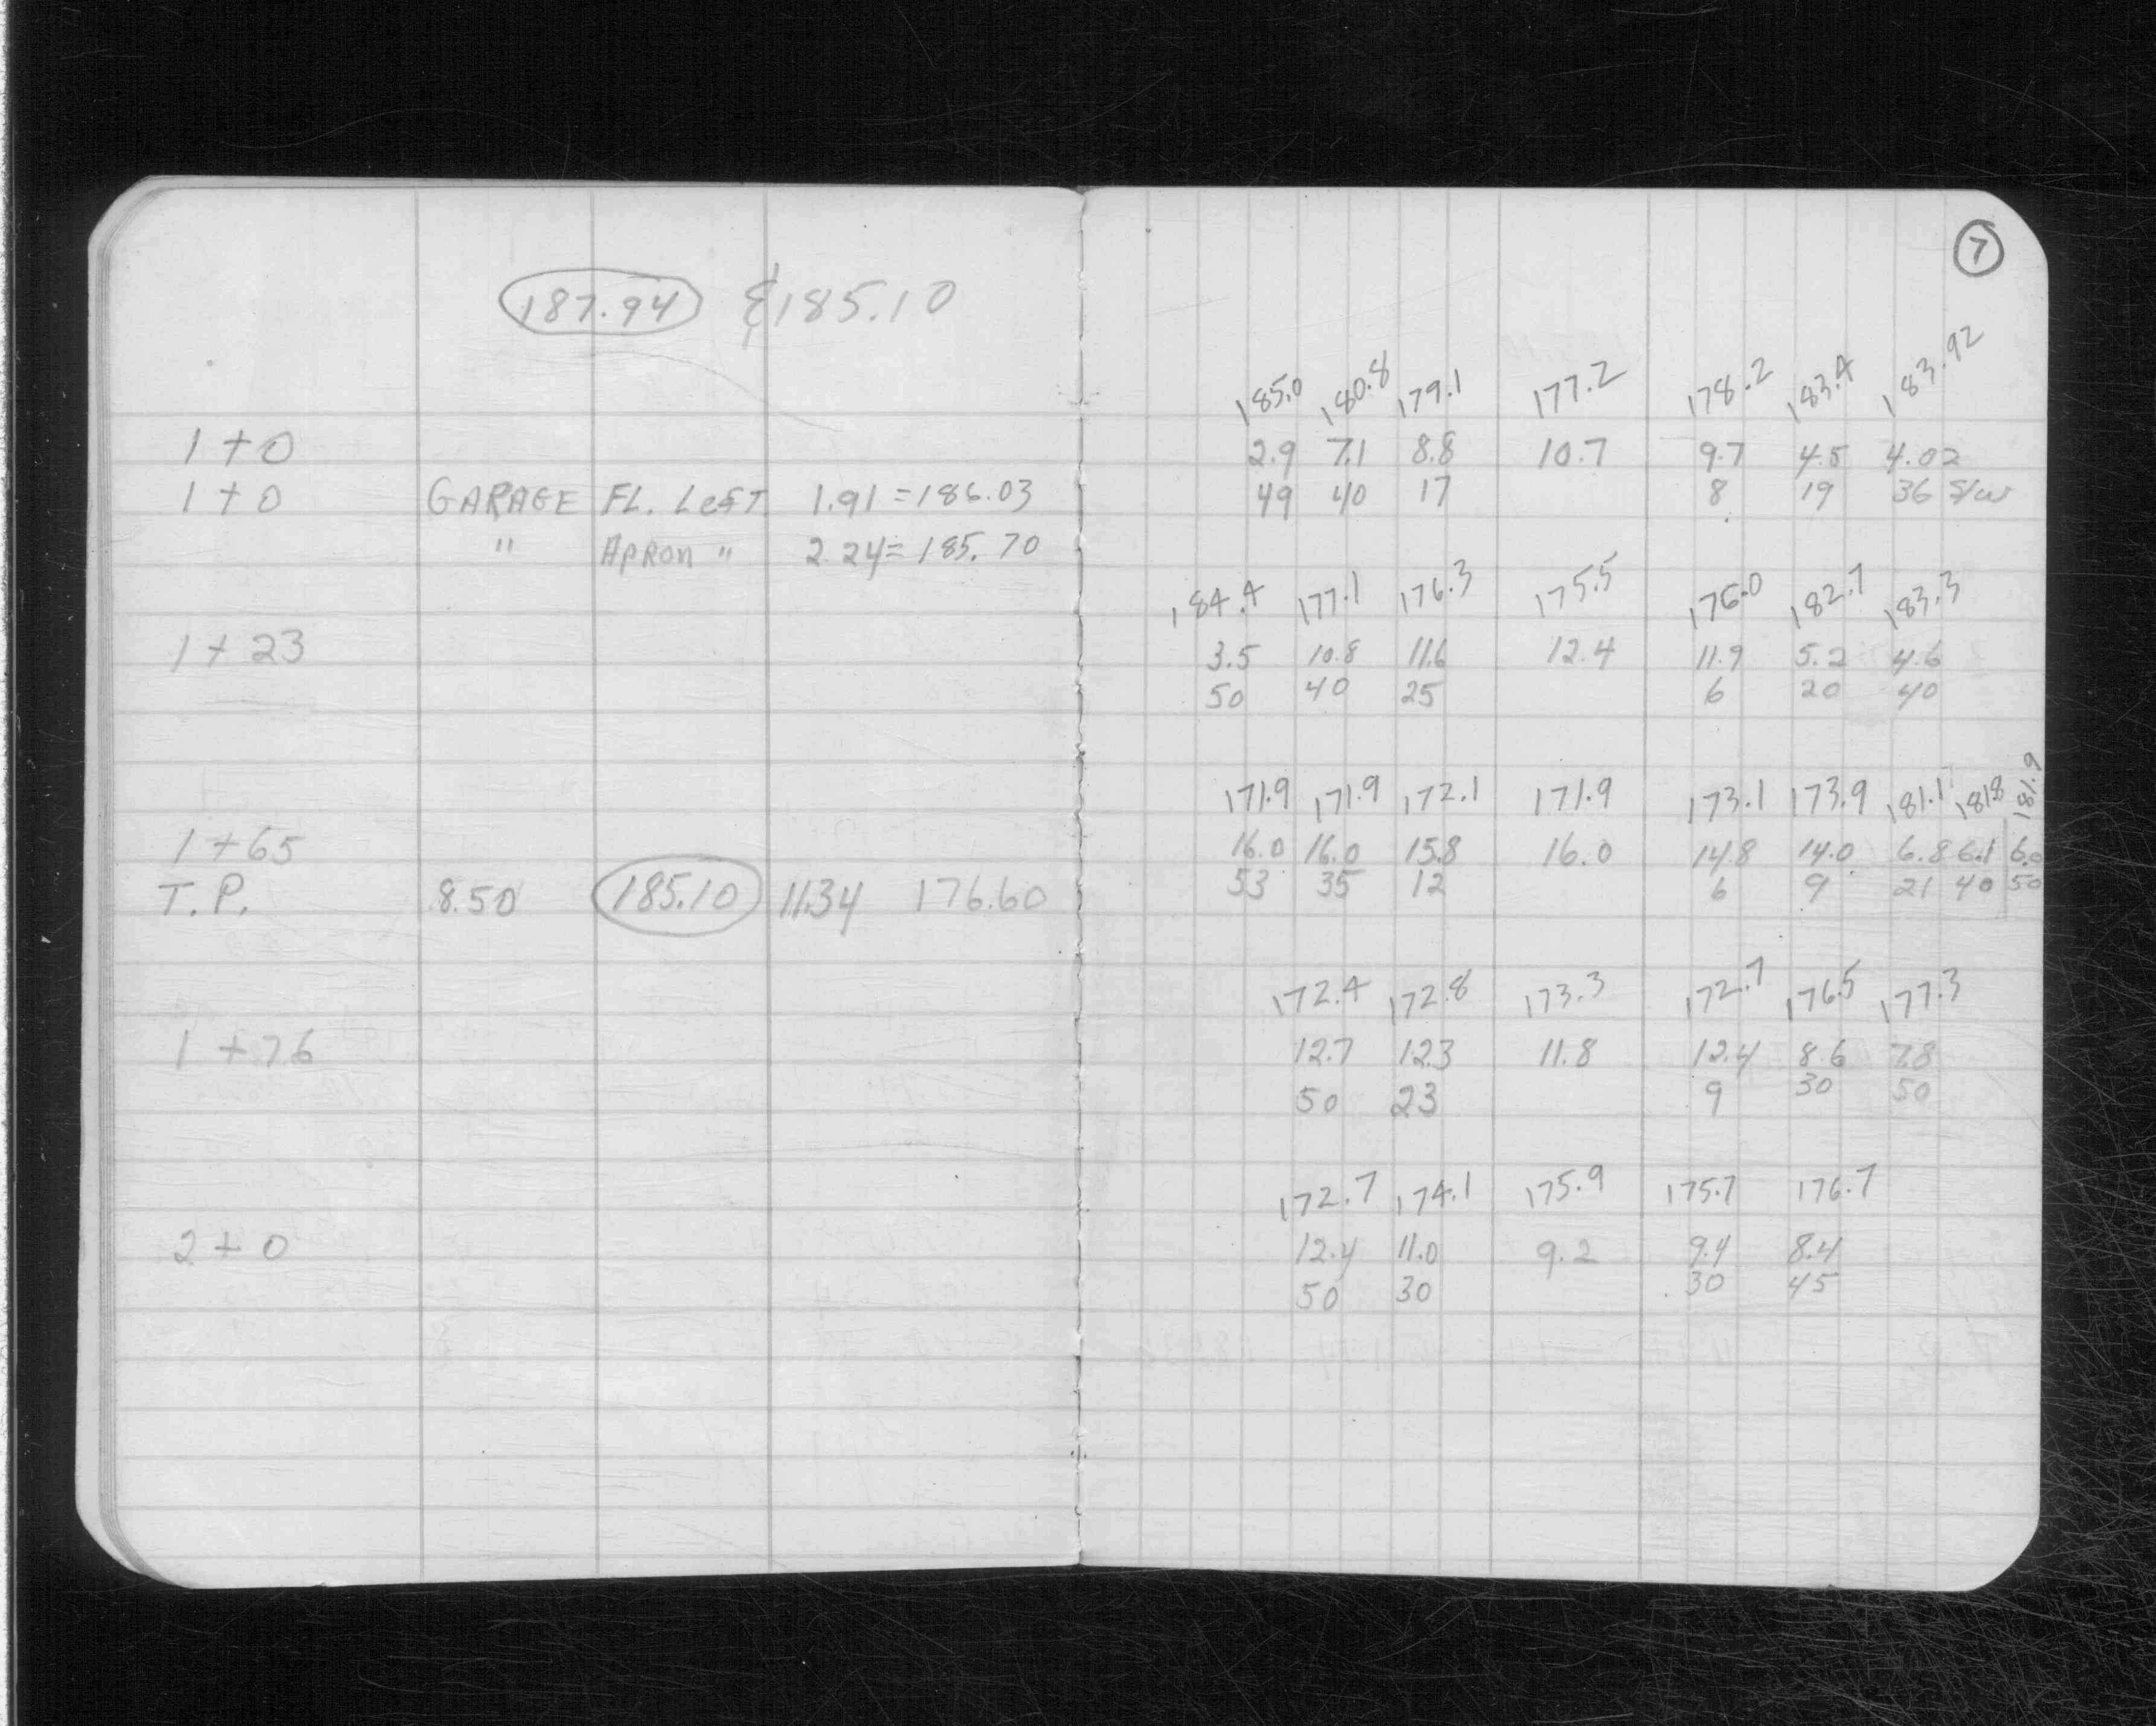 187.94 & 185.10
7
185.0 180.8 179.1 177.2 178.2 183.4 183.92
1+0 2.9 7.1 8.8 10.7 9.7 4.5 4.02
1+0 GARAGE FL. LeFT 1.91 = 186.03 49 40 17 8 19 36 S/W
" APRON " 2.24 = 185.70
184.4 177.1 176.3 175.5 176.0 182.7 183.3
1+23 3.5 10.8 11.6 12.4 11.9 5.2 4.6
50 40 25 6 20 40
171.9 171.9 172.1 171.9 173.1 173.9 181.1 181.8 181.9
1+65 16.0 16.0 15.8 16.0 14.8 14.0 6.8 6.1 6.0
T.P. 8.50 185.10 11.34 176.60 53 35 12 6 9 21 40 50
172.4 172.8 173.3 172.7 176.5 177.3
1+76 12.7 12.3 11.8 12.4 8.6 7.8
50 23 9 30 50
172.7 174.1 175.9 175.7 176.7
2+0 12.4 11.0 9.2 9.4 8.4
50 30 30 45